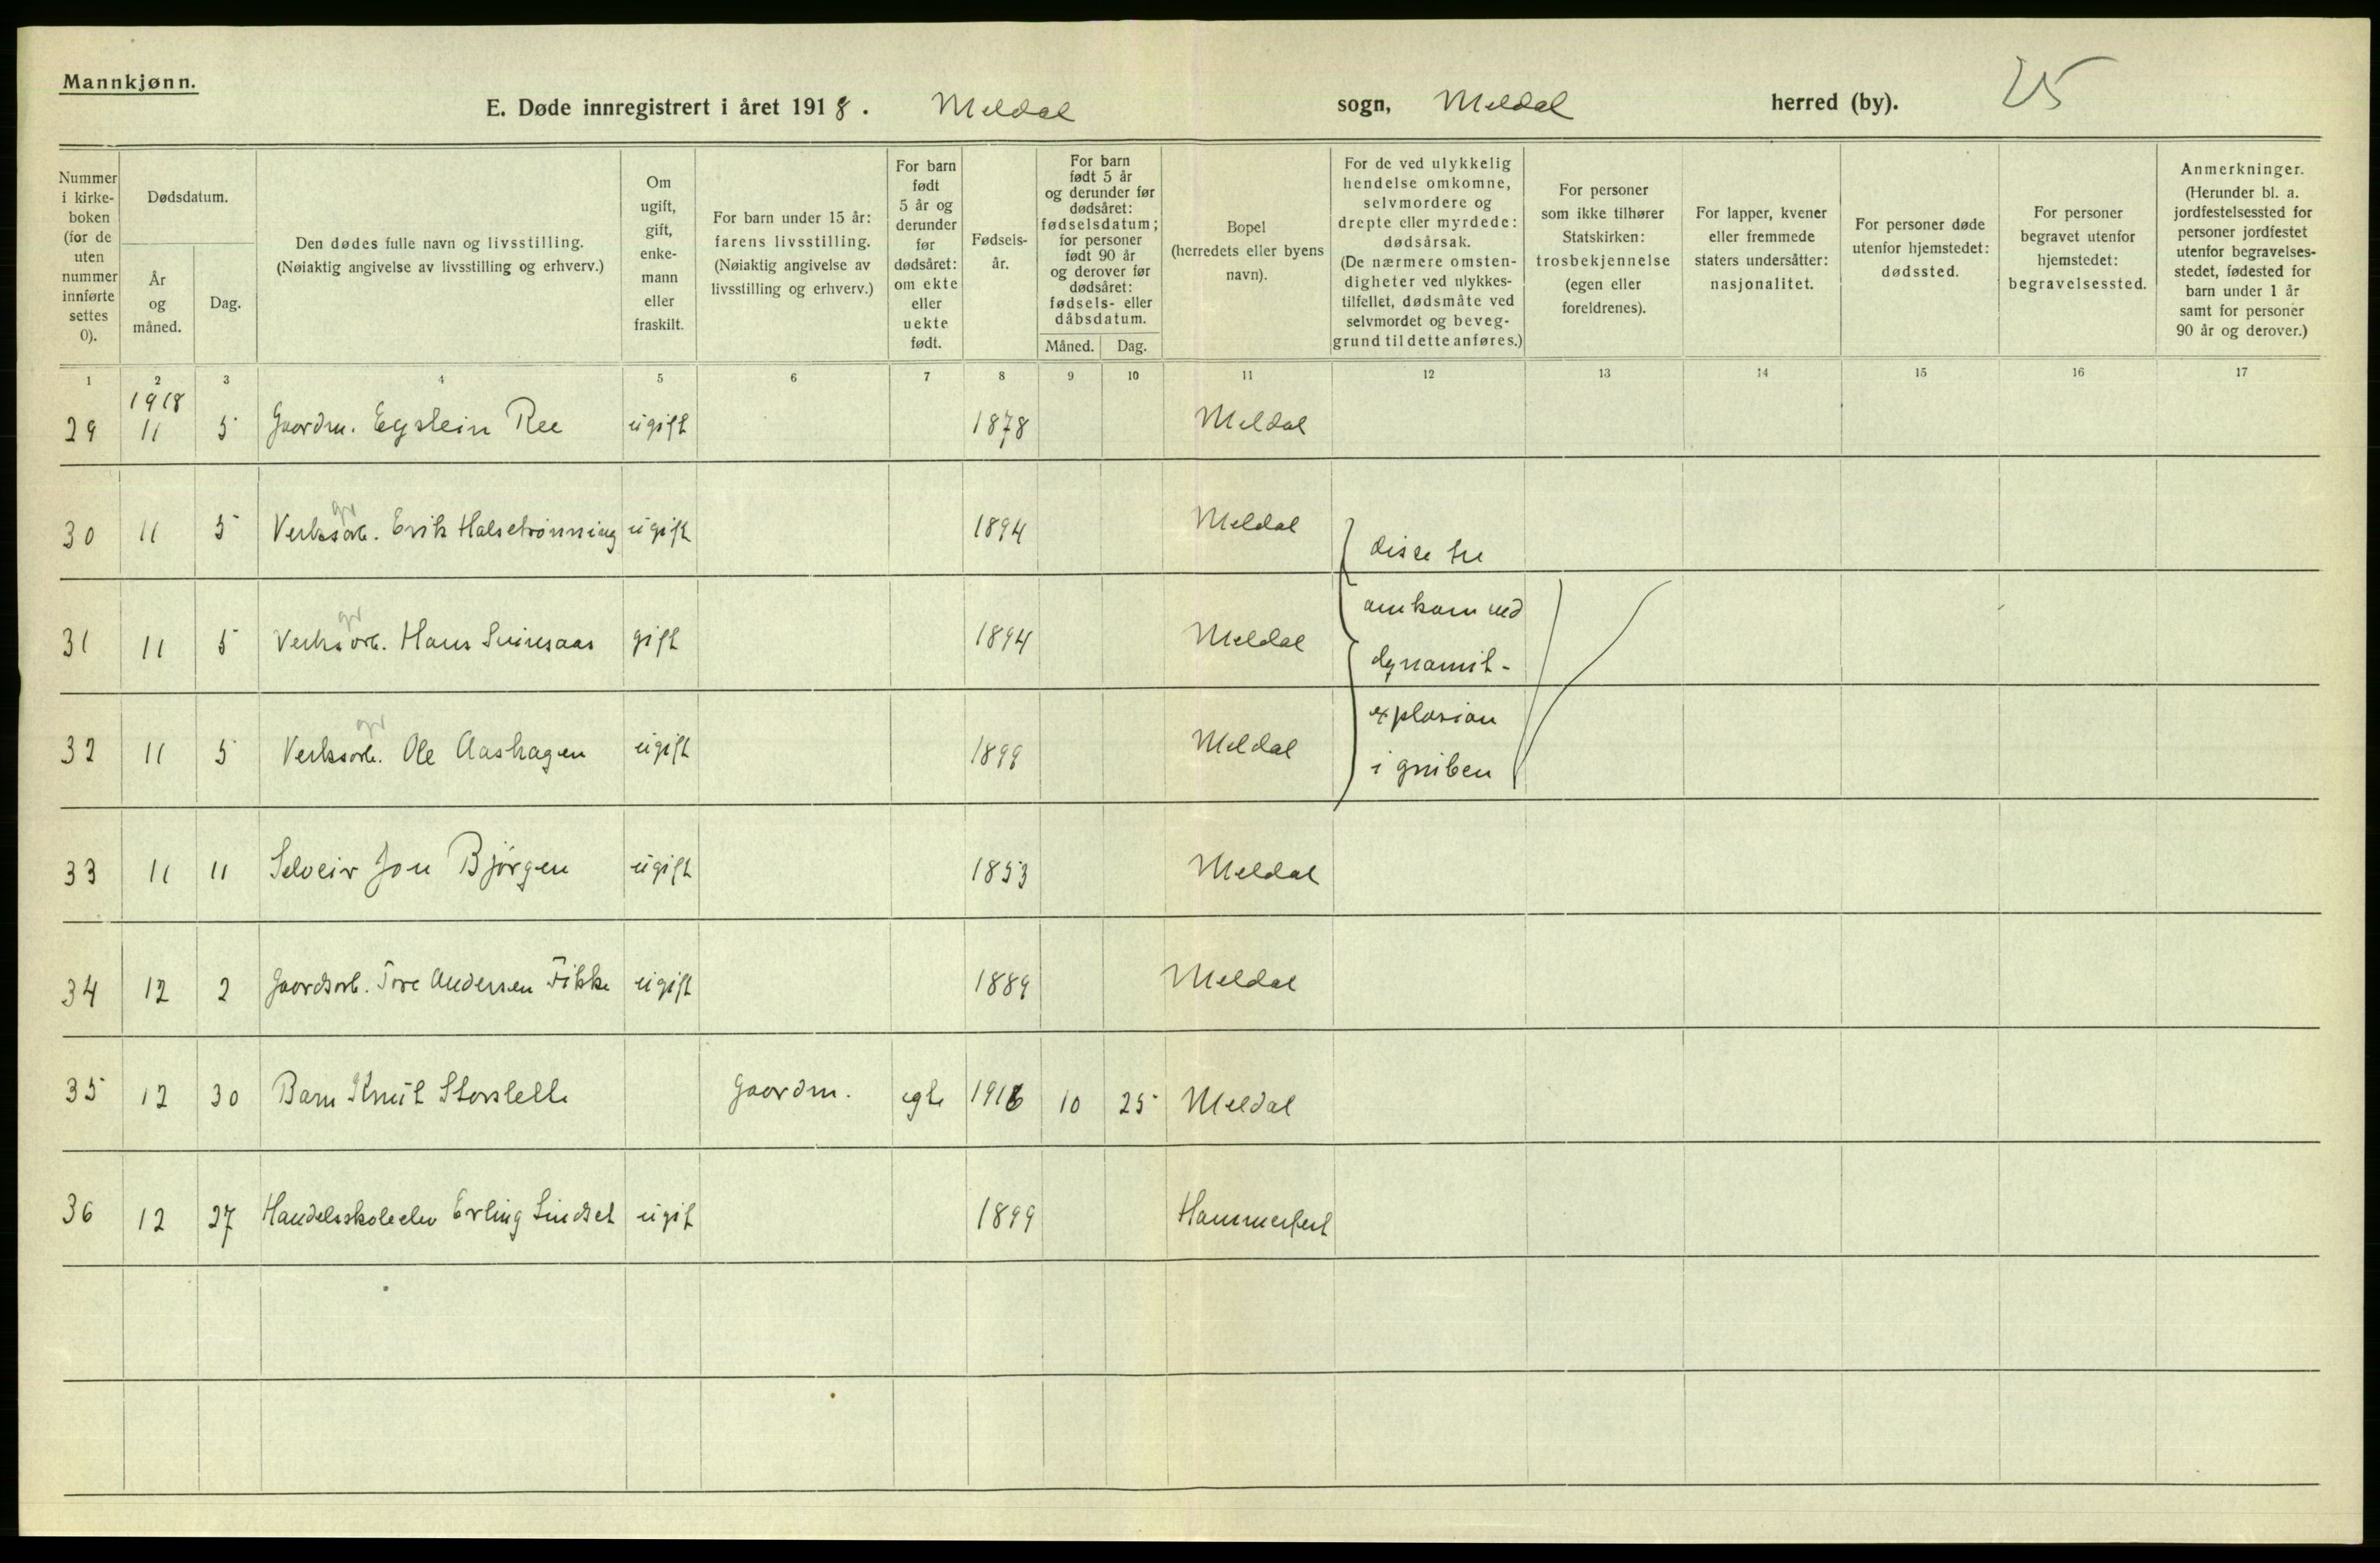 Mannkjønn.
25
E. Døde innregistrert i året 1918. Meldal sogn, Meldal herred (by).
Nummer i kirke- boken (for de uten nummer innførte settes 0).
Dødsdatum.
År og måned.
Dag.
Den dødes fulle navn og livsstilling. (Nøiaktig angivelse av livsstilling og erhverv.)
Om ugift, gift, enke- mann eller fraskilt.
For barn under 15 år: farens livsstilling. (Nøiaktig angivelse av livsstilling og erhverv.)
For barn født 5 år og derunder før dødsåret: om ekte eller uekte født.
Fødsels- år.
For barn født 5 år og derunder før dødsåret: fødselsdatum; for personer født 90 år og derover før dødsåret: fødsels- eller dåbsdatum.
Måned. Dag.
Bopel (herredets eller byens navn).
For de ved ulykkelig hendelse omkomne, selvmordere og drepte eller myrdede: dødsårsak. (De nærmere omsten- digheter ved ulykkes- tilfellet, dødsmåte ved selvmordet og beveg- grund til dette anføres.)
For personer som ikke tilhører Statskirken: trosbekjennelse (egen eller foreldrenes).
For lapper, kvener eller fremmede staters undersåtter: nasjonalitet.
For personer døde utenfor hjemstedet: dødssted.
For personer begravet utenfor hjemstedet: begravelsessted.
Anmerkninger. (Herunder bl. a. jordfestelsessted for personer jordfestet utenfor begravelses- stedet, fødested for barn under 1 år samt for personer 90 år og derover.)
1 2 3 4 5 6 7 8 9 10 11 12 13 14 15 16 17
1918
29 11 5 Gaardm. Eystein Ree ugift 1878 Meldal
gr
30 11 5 Verksarb. Erik Halsetrønning ugift 1894 Meldal disse tre
gr
31 11 5 Verksarb. Hans gift 1894 Meldal omkom ved dynamit-
gr
32 11 5 Verksarb. Ole Aashagen ugift 1899 Meldal explosion i gruben
33 11 11 Selveir Jon Bjørgen ugift 1853 Meldal
34 12 2 Gaardsarb. Tore Andersen Fikke ugift 1889 Meldal
35 12 30 Barn Knut Gaardm. egte 1918 10 25 Meldal
36 12 27 Handelsskoleelev Erling Lindset ugift 1899 Hammerfest